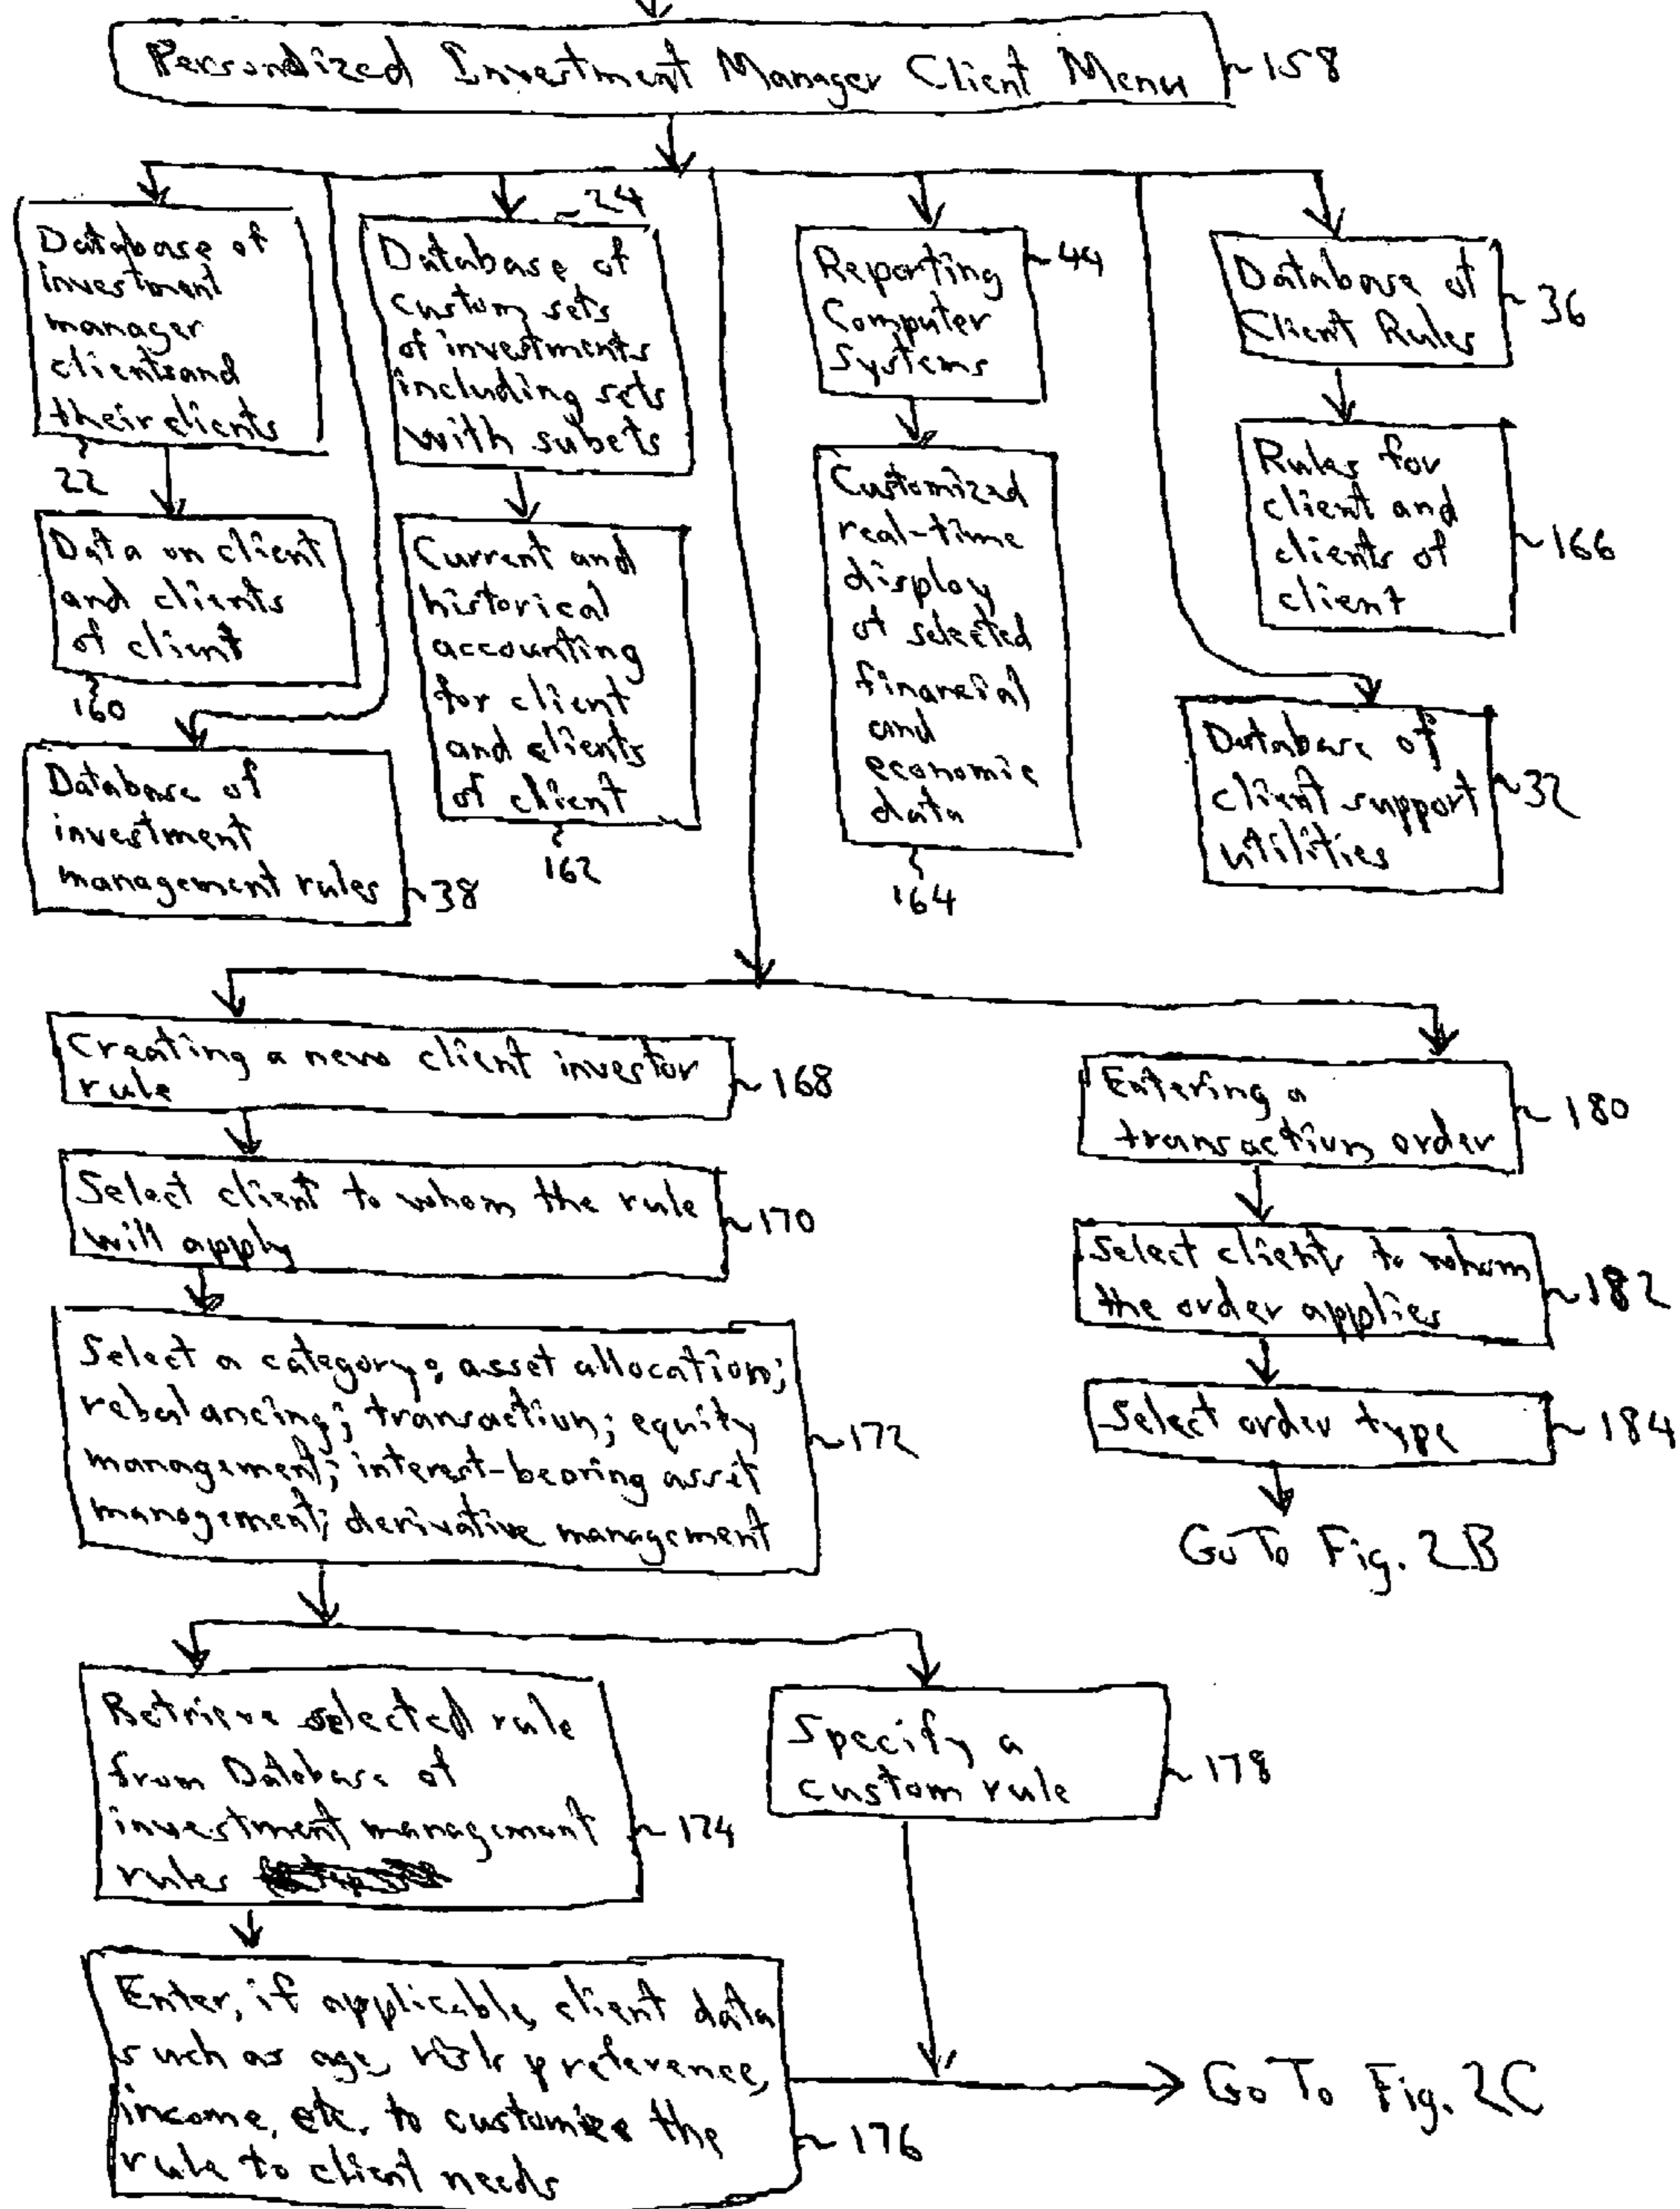 Personalized Investment Manager Client Menu
158
Database of
investment
manager
clients and
their clients
22
Data on client
and clients
of client
160
Database of
investment
management rules
38
24
Database of
custom sets
of investments
including sets
with subets
Current and
historical
accounting
for client
and clients
of client
162
Reporting
Computer
Systems
44
Customized
real-time
display
of selected
financial
and
economic
data
164
Database of
Client Rules
36
Rules for
client and
clients of
client
166
Database of
client support
utilities
32
Creating a new client investor
rule
168
Select client to whom the rule
will apply
170
Select a category: asset allocation;
rebalancing; transaction; equity
management; interest-bearing asset
management; derivative management
172
Retrieve selected rule
from Database of
investment management
rules
174
Enter, if applicable, client data
such as age, risk preference,
income, etc. to customize the
rule to client needs
176
Specify a
custom rule
178
Go To Fig. 2C
Entering a
transaction order
180
Select client to whom
the order applies
182
Select order type
184
Go To Fig. 2B